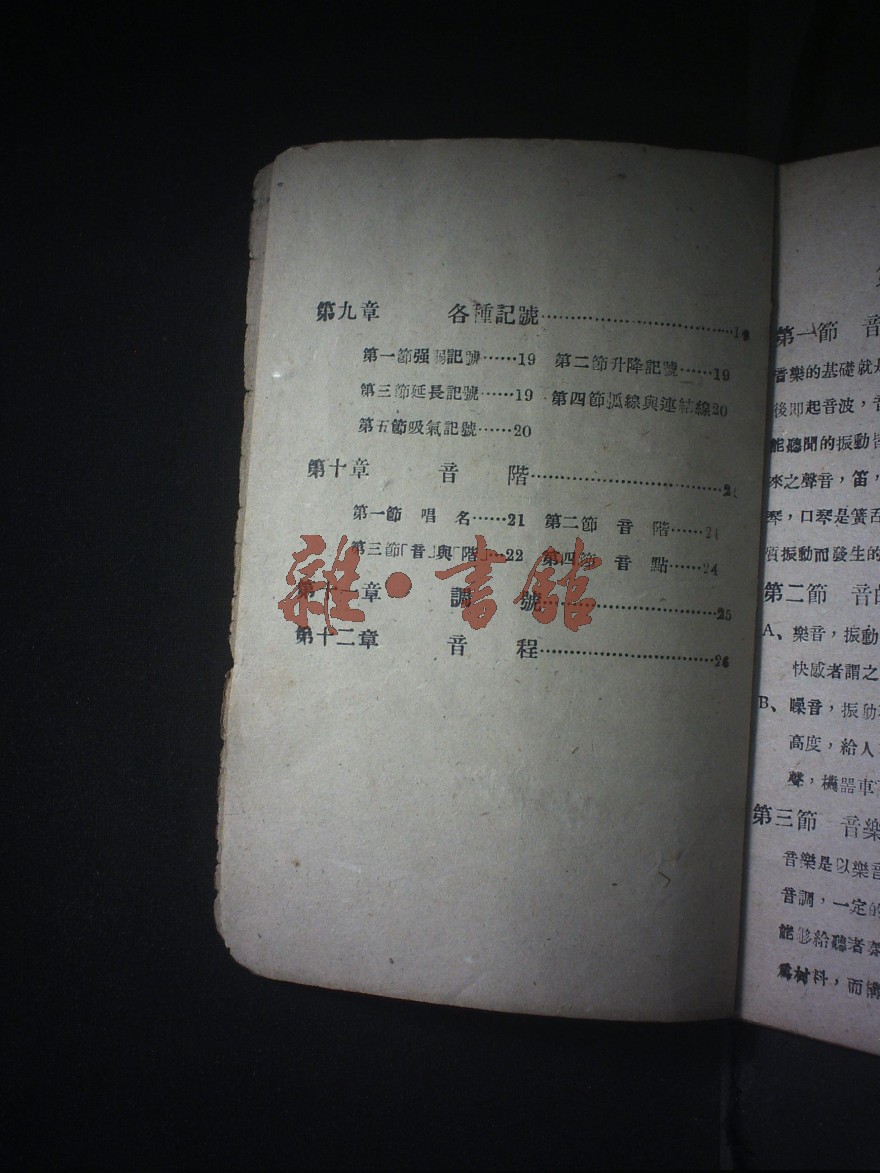 第九章 各種記號……………………1
第一節强弱記號……19 第二節升降記號……19
第三節延長記號……19 第四節弧線與連結線20
第五節吸氣記號……20
第十章 音 階……………………21
第一節 唱 名……21 第二節 音 階……21
第三節「音」與「階」…22 第四節 音 點……24
第十一章 調 號……………………25
第十二章 音 程……………………26
雜·書館
第一節 音
音樂的基礎就是
後即起音波，音
能聽聞的振動皆
來之聲音，笛，
琴，口琴是簧舌
質振動而發生的
第二節 音的
A、樂音，振動
快感者謂之
B、噪音，振動
高度，給人
聲，機器車
第三節 音樂
音樂是以樂音
音調，一定的
能够給聽者
爲材料，而構